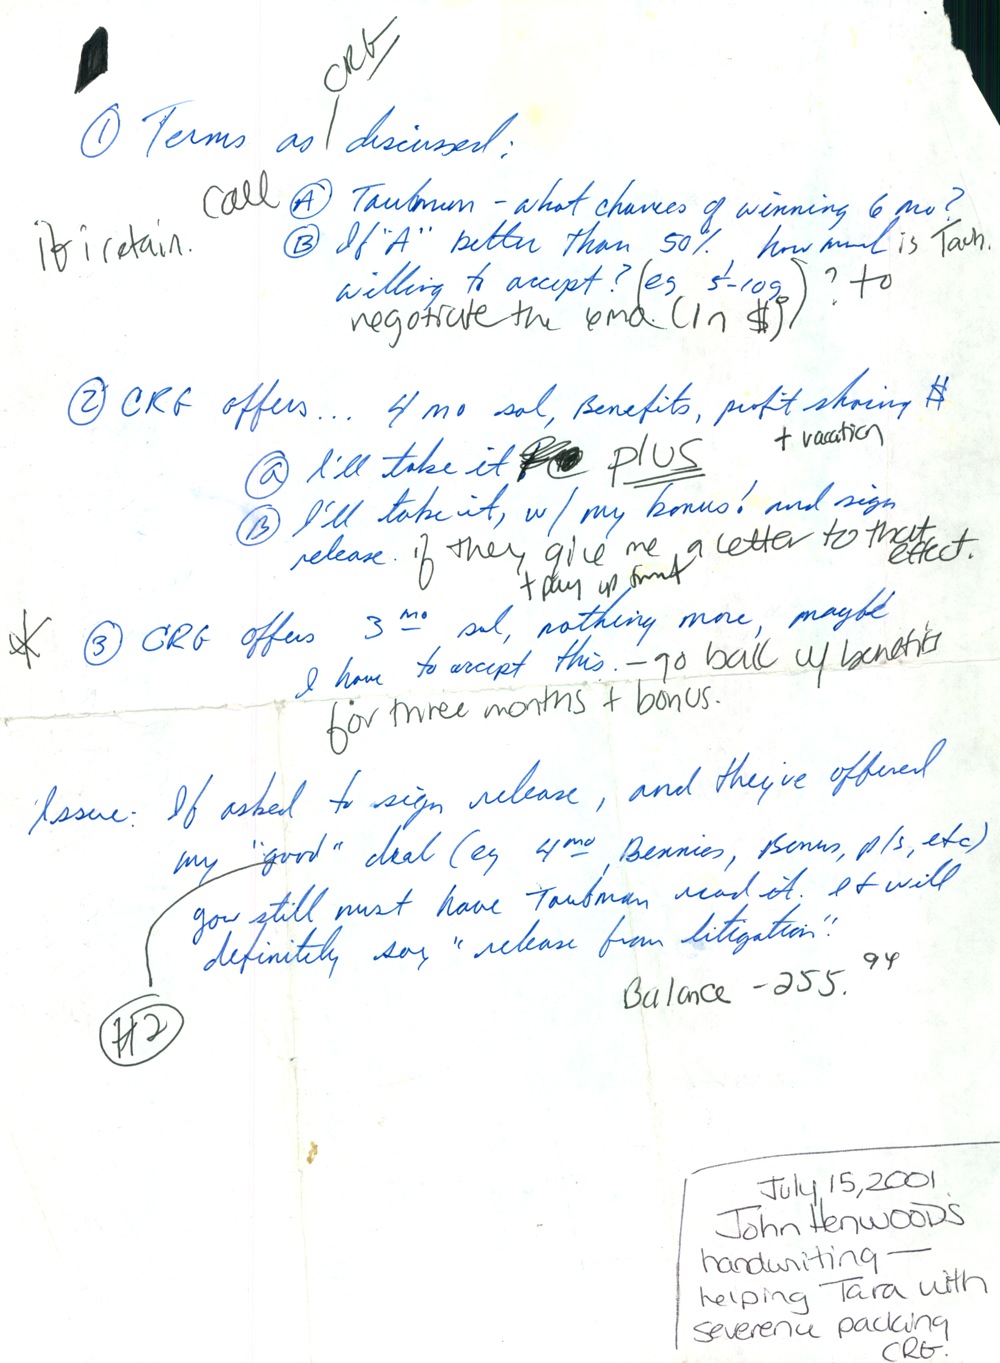 CRG
① Terms as discussed:
call Ⓐ Taubman - what chances of winning 6 mo?
if i retain. Ⓑ If "A" better than 50% how much is Taub.
willing to accept? (eg 5-10g)? to
negotiate the 6mo. (in $)
② CRG offers... 4 mo sal, Benefits, profit sharing $
+ vacation
ⓐ I'll take it plus
Ⓑ I'll take it, w/ my bonus! and sign
release. if they give me a letter to that effect.
+ pay up front
③ CRG offers 3 mo sal, nothing more, maybe
I have to accept this. - go back w/ benefits
for three months + bonus.
Issue: If asked to sign release, and they've offered
my "good" deal (eg 4 mo, Bennies, Bonus, p/s, etc)
you still must have Taubman read it. It will
definitely say "release from litigation".
Balance - 255.94
#2
July 15, 2001
John Henwood's
handwriting —
helping Tara with
severence packing
CRG.